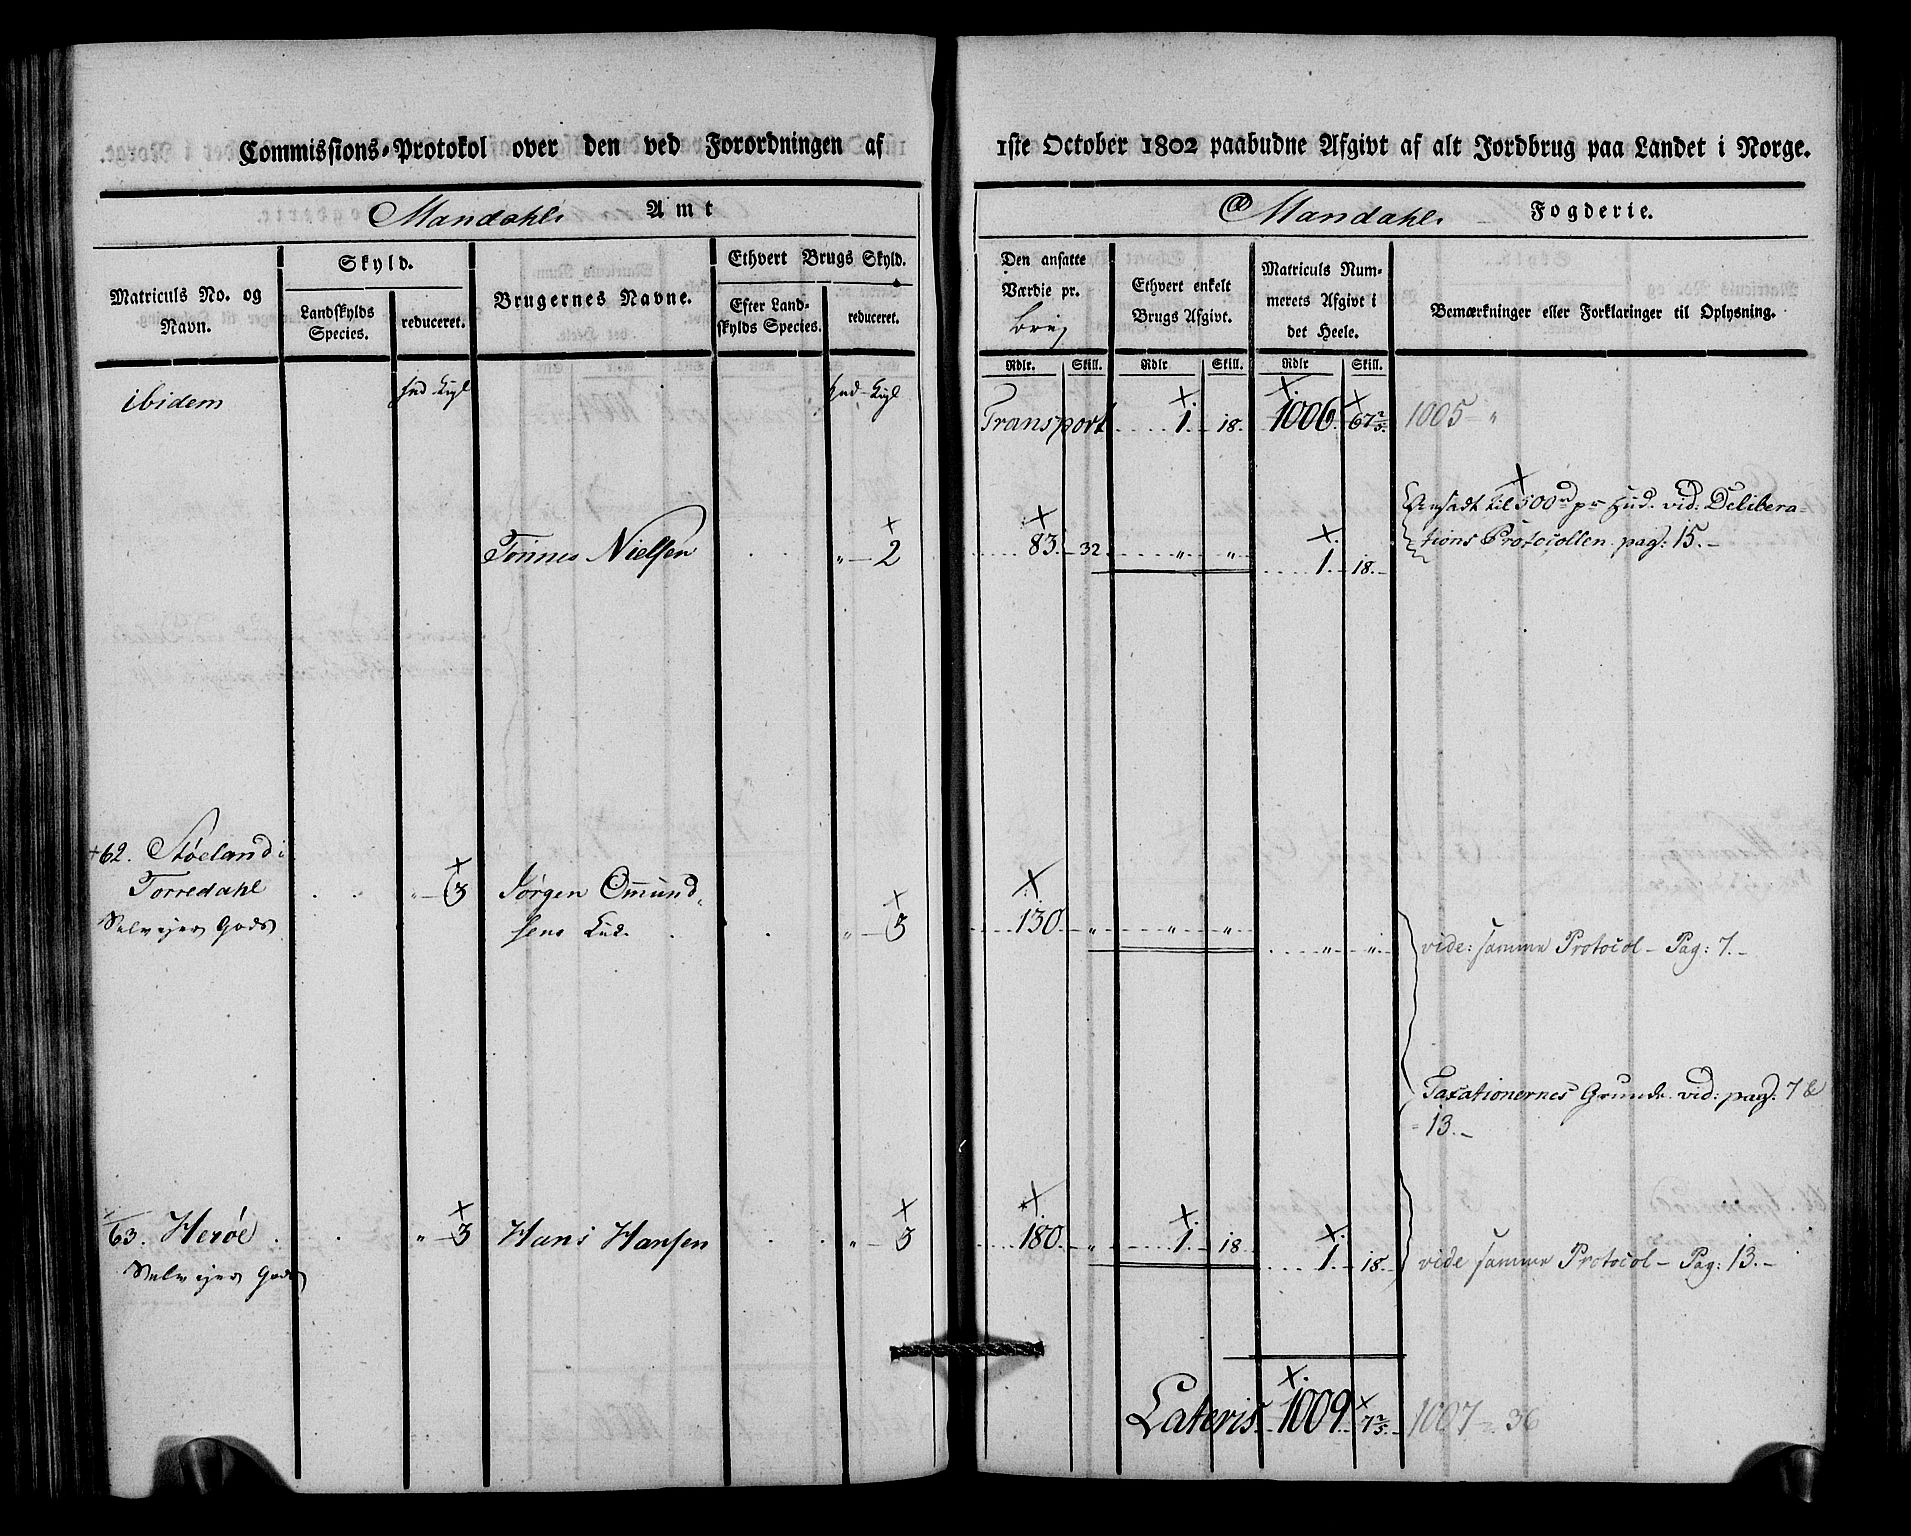 Commissions-Protokol over den ved Forordningen af 1ste October 1802 paabudne Afgivt af alt Jordbrug paa Landet i Norge.
Mandahls Amt
Mandahls Fogderie.
Matriculs No. og Navn.
Skyld.
Landskylds Species.
reduceret.
Brugernes Navne.
Ethvert Brugs Skyld.
Efter Landskylds Species.
reduceret.
Den ansatte Værdie pr. brug
Ethvert enkelt Brugs Afgivt.
Matriculs Nummerets Afgivt i det Heele.
Bemærkninger eller Forklaringer til Oplysning.
Rdlr. Skill. Rdlr Skill. Rdlr Skill.
ibidem
Transport 1. 18. 1006. 67 2/5. 1005 "
Ansadt til 500 rd pr Hud. vid: Delibera-
Tönnes Nielsen " 2 83. 32 " " 1. 18. tions Protocollen pag: 15.
62. Støeland i
Torredahl " 3 Jørgen Omund-
Selveyer Gods sens " 3 130 " " " " " vide: samme Protocol - Pag: 7.
Taxationernes Grunde vid: pag: 7 &
13.
63. Herøe " 3 Hans Hansen " 3 180. " 1. 18
Selveyer Gods 1. 18. vide samme Protocol - Pag: 13.
Lateris 1009. 7 2/5. 1007 36